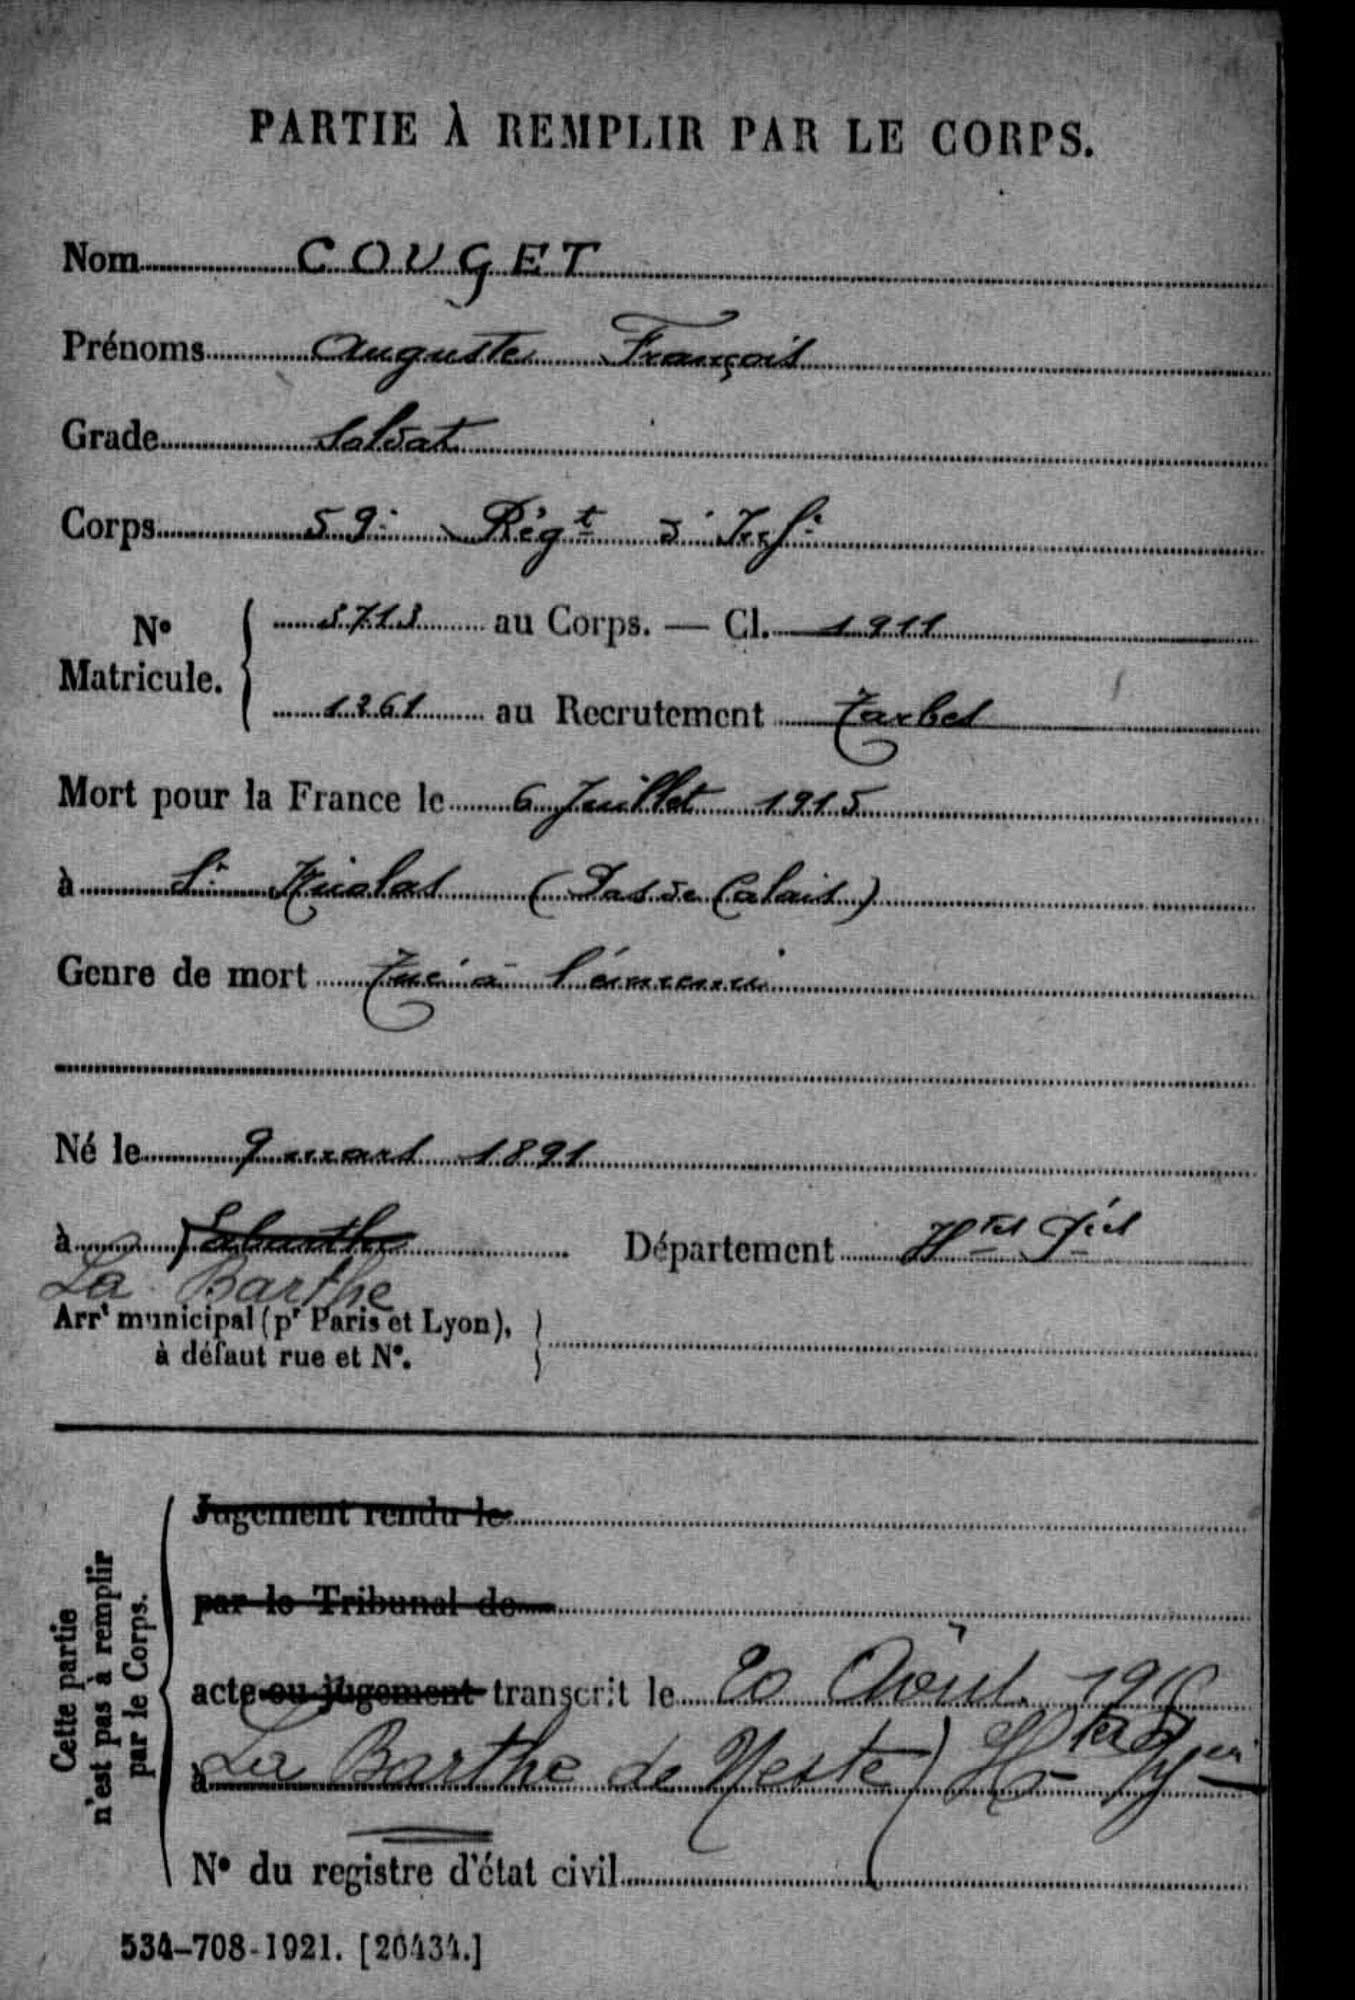 PARTIE À REMPLIR PAR LE CORPS.
Nom COUGET
Prénoms Auguste François
Grade Soldat
Corps 59e Régt d'Infie
No Matricule. 5713 au Corps. — Cl. 1911
1261 au Recrutement Tarbes
Mort pour la France le 6 Juillet 1915
à St Nicolas (Pas de Calais)
Genre de mort Tué à l'ennemi
Né le 9 mars 1891
à Labarthe Département Htes Pées
La Barthe
Arrt municipal (pr Paris et Lyon),
à défaut rue et No.
Cette partie
n'est pas à remplir
par le Corps.
Jugement rendu le
par le Tribunal de
acte ou jugement transcrit le 20 Août
à La Barthe de Neste) Htes Pyen
No du registre d'état civil
534-708-1921. [26434.]